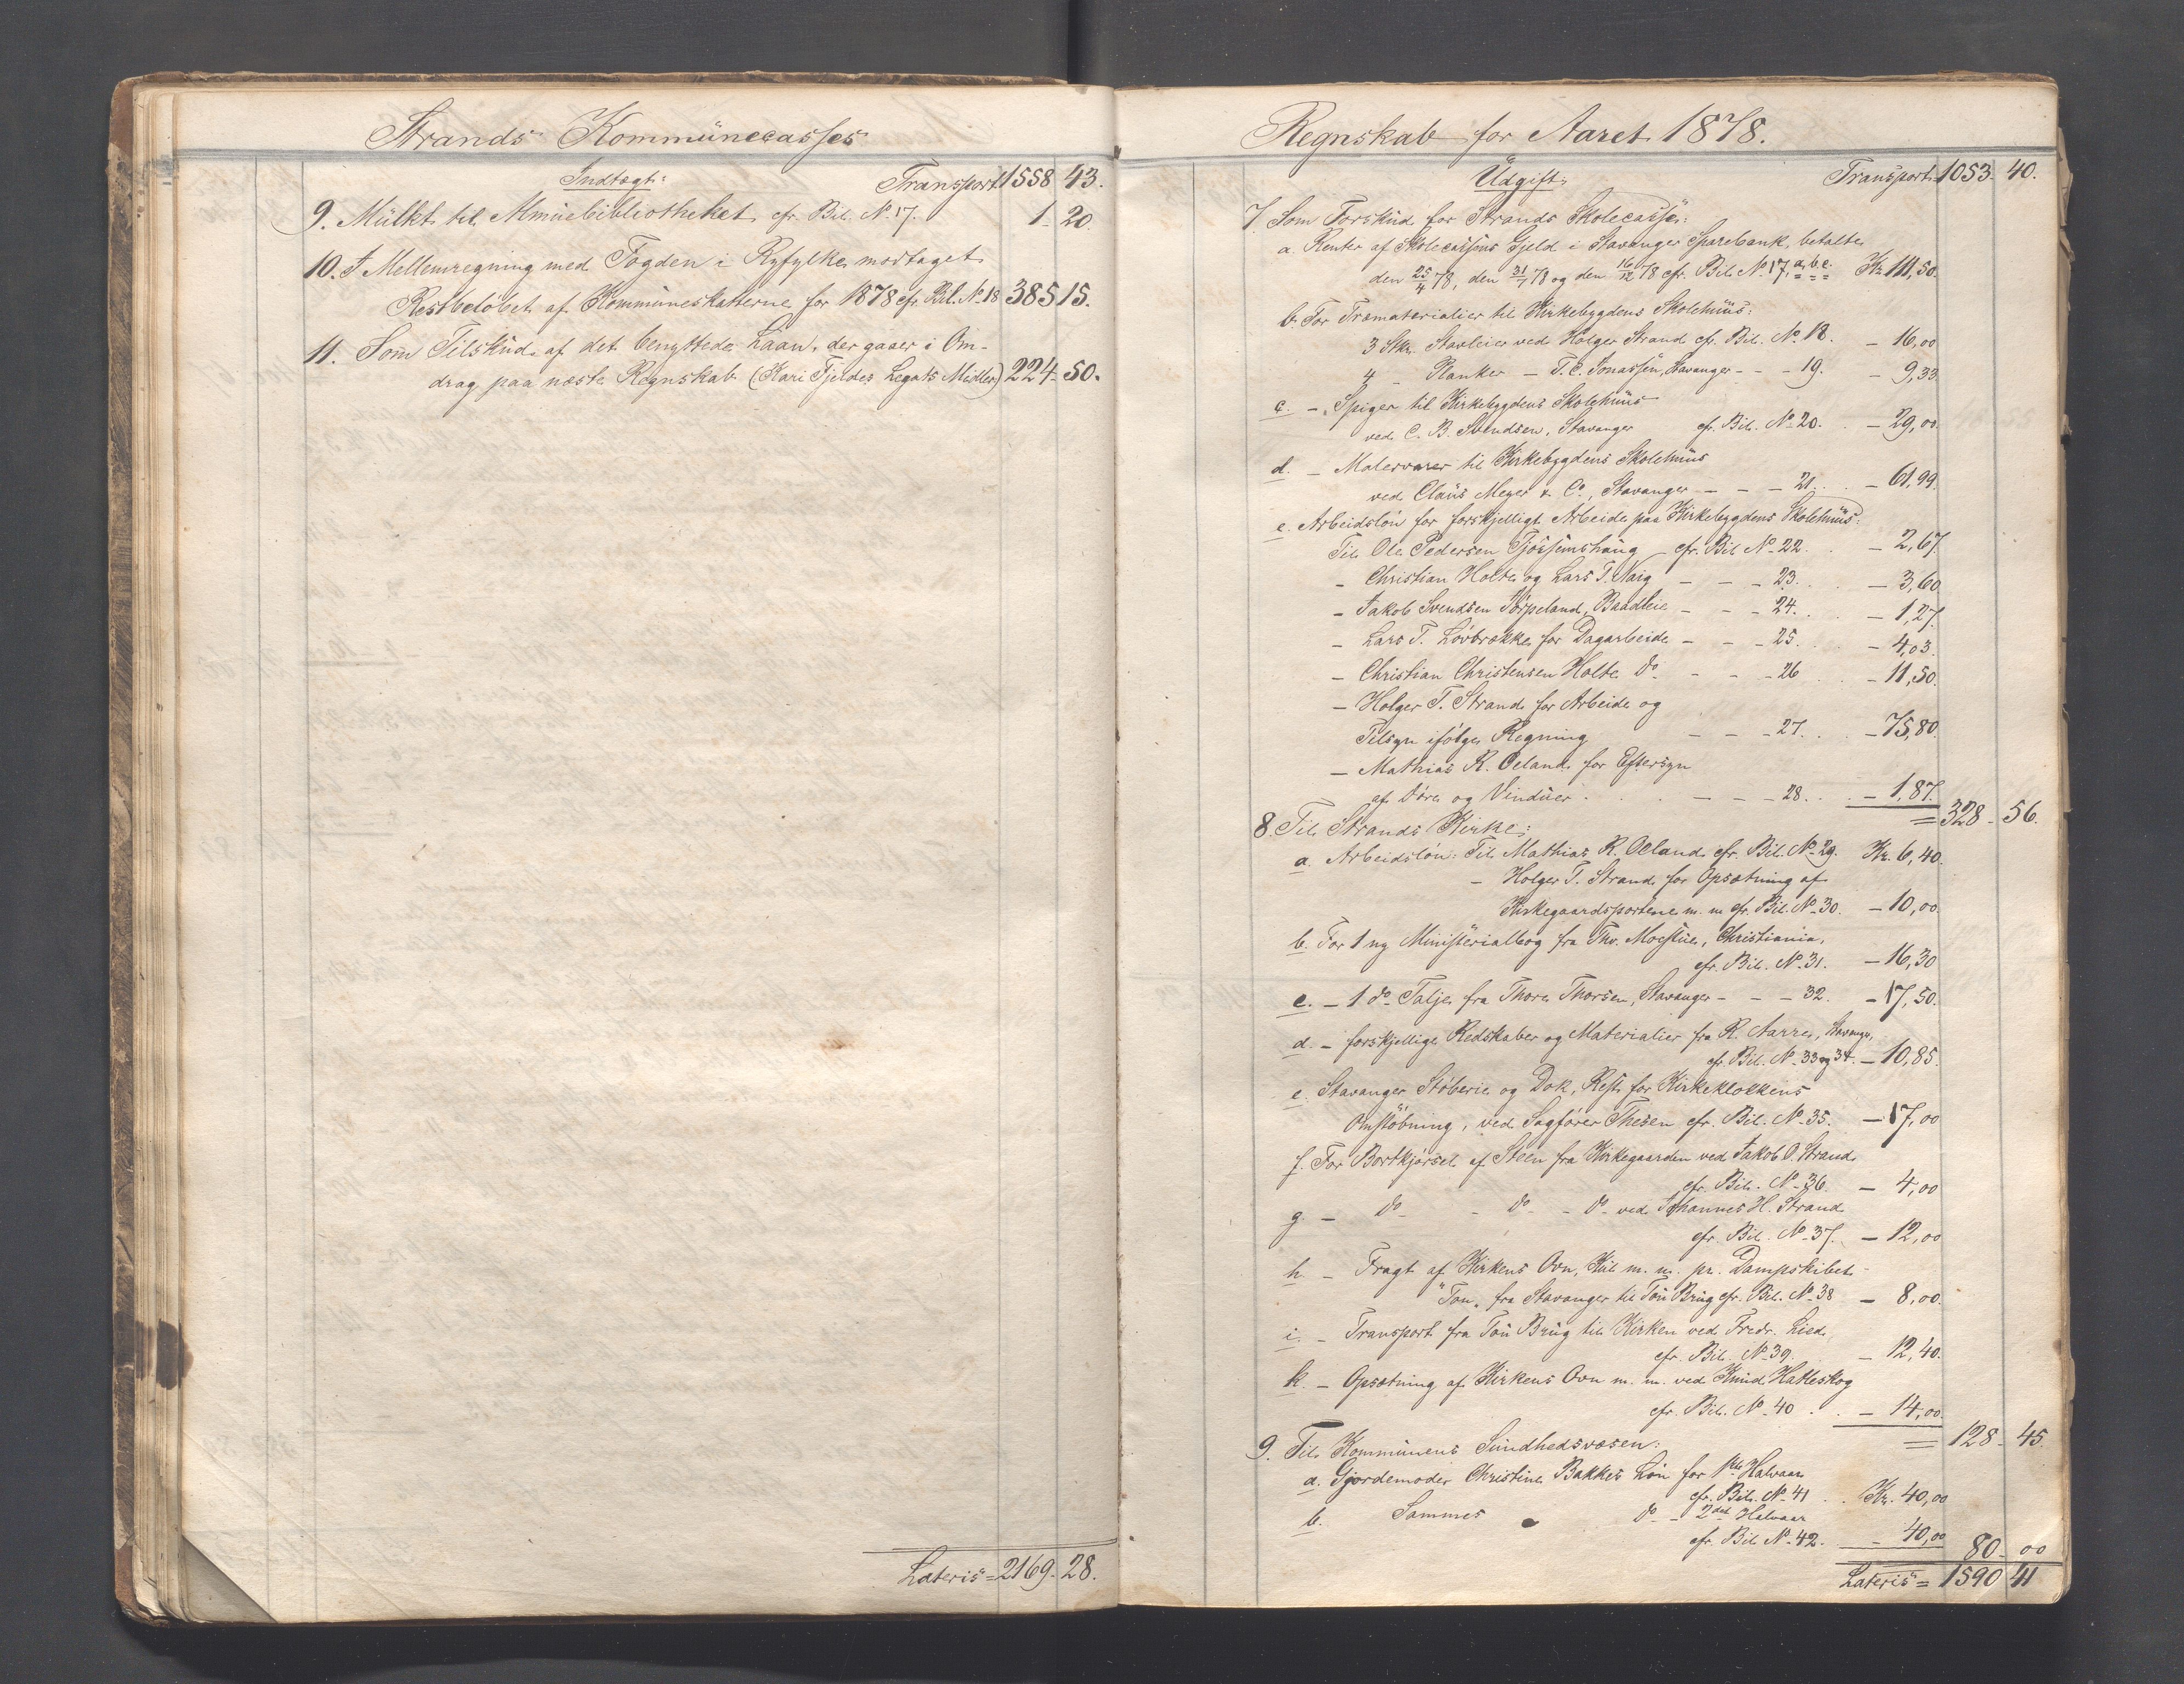 Strands Kommünecasses
Indtægt: Transport 1558 43.
9. Mülkt til Almüebibliotheket cfr. Bil. No 17. 1 - 20.
10. I Mellemregning med Fogden i Ryfylke modtaget
Restbeløbet af Kommüneskatterne for 1878 cfr. Bil. No 18 385 15.
11. Som Tilskud af det benyttede Laan, der gaaer i Om-
drag paa næste Regnskab (Kari Fjeldes Legats Midler) 224 - 50.
Lateris = 2169 - 28.
Regnskab for Aaret 1878.
Üdgift: Transport 1053 - 40.
7. Som Forskud for Strands Skolecasse:
a. Renter af Skolecassens Gjeld i Stavanger Sparebank, betalte
den 25/4 78, den 31/7 78 og den 16/12 78 cfr. Bil. No 17, a, b, c. Kr. 111,50.
b. For Træmaterialier til Kirkebygdens Skolehüüs:
3 Stkr. Stavleier ved Holger Strand cfr. Bil. No 18. - 16,00
4 - Planker - T. C. Jonassen, Stavanger - - - 19. - 9,33
c. - Spiger til Kirkebygdens Skolehüüs
ved C. B. Svendsen, Stavanger cfr. Bil. No 20. - 29,00.
d. - Malervarer til Kirkebygdens Skolehüüs
ved Claüs Meyer & Co., Stavanger - - - 21. - 61,99.
e. Arbeidsløn for forskjelligt Arbeide paa Kirkebygdens Skolehüüs:
Til Ole Pedersen Tjøssemshaug cfr. Bil No 22. - 2,67.
- Christian Holte og Lars T. Naig - - - 23. - 3,60
- Jakob Svendsen Jørpeland, Baadleie - - - 24. - 1,27.
- Lars T. Løvbrække for Dagarbeide - - - 25. - 4,03.
- Christian Christensen Holte do - - - 26 - 11,50.
- Holger T. Strand for Arbeide og
Tilsyn ifølge Regning - - - 27. - 75,80.
- Mathias R. Oeland for Eftersyn
af Døre og Vindüer - - - 28. - 1,87.
= 328 - 56.
8. Til Strands Kirke:
a. Arbeidsløn: Til Mathias R. Oeland cfr. Bil. No 29. Kr. 6,40.
- Holger T. Strand for Opsætning af
Kirkegaardsportene m. m cfr. Bil. No 30. - 10,00.
b. For 1 ny Ministerialbog fra Thv. Moestüe, Christiania,
cfr. Bil. No 31. - 16,30
c. - 1 do Talje fra Thore Thorsen, Stavanger - - - 32. - 17,50.
d. - forskjellige Redskaber og Materialier fra R. Aarre, Stavanger,
cfr. Bil. No 33 og 34. - 10,85.
e. Stavanger Støberie og Dok, Rest for Kirkeklokkens
Omstøbning, ved Sagfører Thesen cfr. Bil. No 35. - 17,00
f. For Bortkjørsel af Steen fra Kirkegaarden ved Jakob O. Strand
cfr. Bil. No 36. - 4,00
g. - do - do - do ved Johannes H. Strand
cfr. Bil. No 37. - 12,00
h. - Fragt af Kirkens Ovn, Kül m. m. pr. Dampskibet
"Tou" fra Stavanger til Toü Brüg cfr. Bil. No 38 - 8,00.
i. - Transport fra Toü Brüg til Kirken ved Fredr. Lied,
cfr. Bil. No 39. - 12,40.
k. - Opsætning af Kirkens Ovn m. m. ved Knüd Hatleskog
cfr. Bil. No 40 . - 14,00.
= 128 - 45.
9. Til Kommünens Sündhedsvæsen:
a. Gjordemoder Christine Bakkes Løn for 1ste Halvaar
cfr. Bil. No 41 . Kr. 40,00
b. Sammes do - 2det Halvaar
cfr. Bil No 42. - 40,00 80 - 00
Lateris = 1590 41